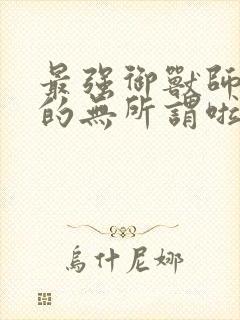 最強御獸師
的無所謂啦
烏什尼娜